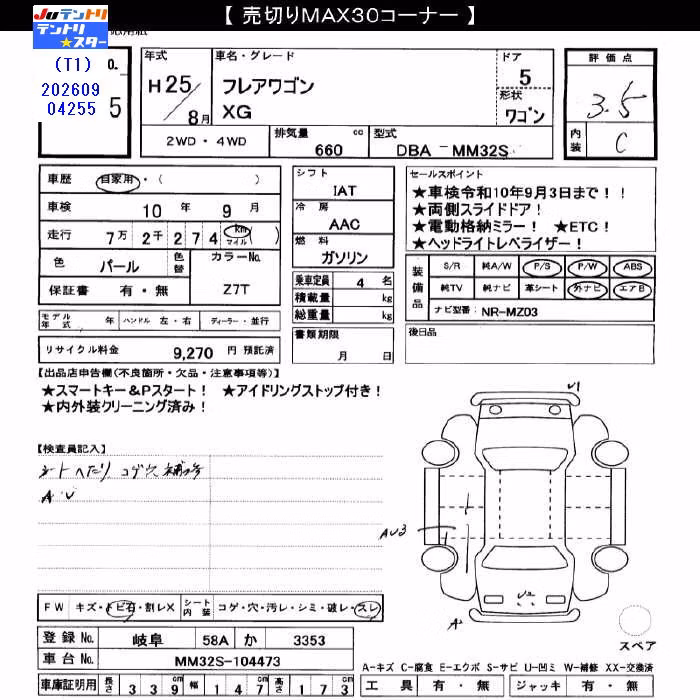 【 売切りMAX30コーナー 】
JUテントリ
テントリ
★スター
(T1)
202609
04255
O.
5
年式
H25/8月
車名・グレード
フレアワゴン
XG
ドア
5
形状
ワゴン
評価点
3.5
内装
C
2WD・4WD
排気量
660 cc
型式
DBA - MM32S
車歴 自家用・( )
車検 10年 9月
走行 7万 2千 2 7 4 km マイル ( )
色 パール 色替 カラーNo.
保証書 有・無 Z7T
モデル年式 年 ハンドル 左・右 ディーラー・並行
リサイクル料金 9,270 円 預託済
シフト
IAT
冷房
AAC
燃料
ガソリン
乗車定員 4 名
積載量 kg
総重量 kg
書類期限
月 日
セールスポイント
★車検令和10年9月3日まで!!
★両側スライドドア!
★電動格納ミラー! ★ETC!
★ヘッドライトレベライザー!
装備品
S/R 純A/W P/S P/W ABS
純TV 純ナビ 革シート 外ナビ エアB
ナビ型番: NR-MZ03
後日品
【出品店申告欄(不良箇所・欠品・注意事項等)】
★スマートキー&Pスタート! ★アイドリングストップ付き!
★内外装クリーニング済み!
【検査員記入】
シートヘたり コゲ穴 補修
A・U
U1
AU3
A2
FW キズ・トビ石・割レX シート内装 コゲ・穴・汚レ・シミ・破レ・スレ
登録No. 岐阜 58A か 3353
車台No. MM32S-104473
車庫証明用 長さ 3 3 9 cm 幅 1 4 7 cm 高さ 1 7 3 cm
スペア
A-キズ C-腐食 E-エクボ S-サビ U-凹ミ W-補修 XX-交換済
工具 有・無 ジャッキ 有・無